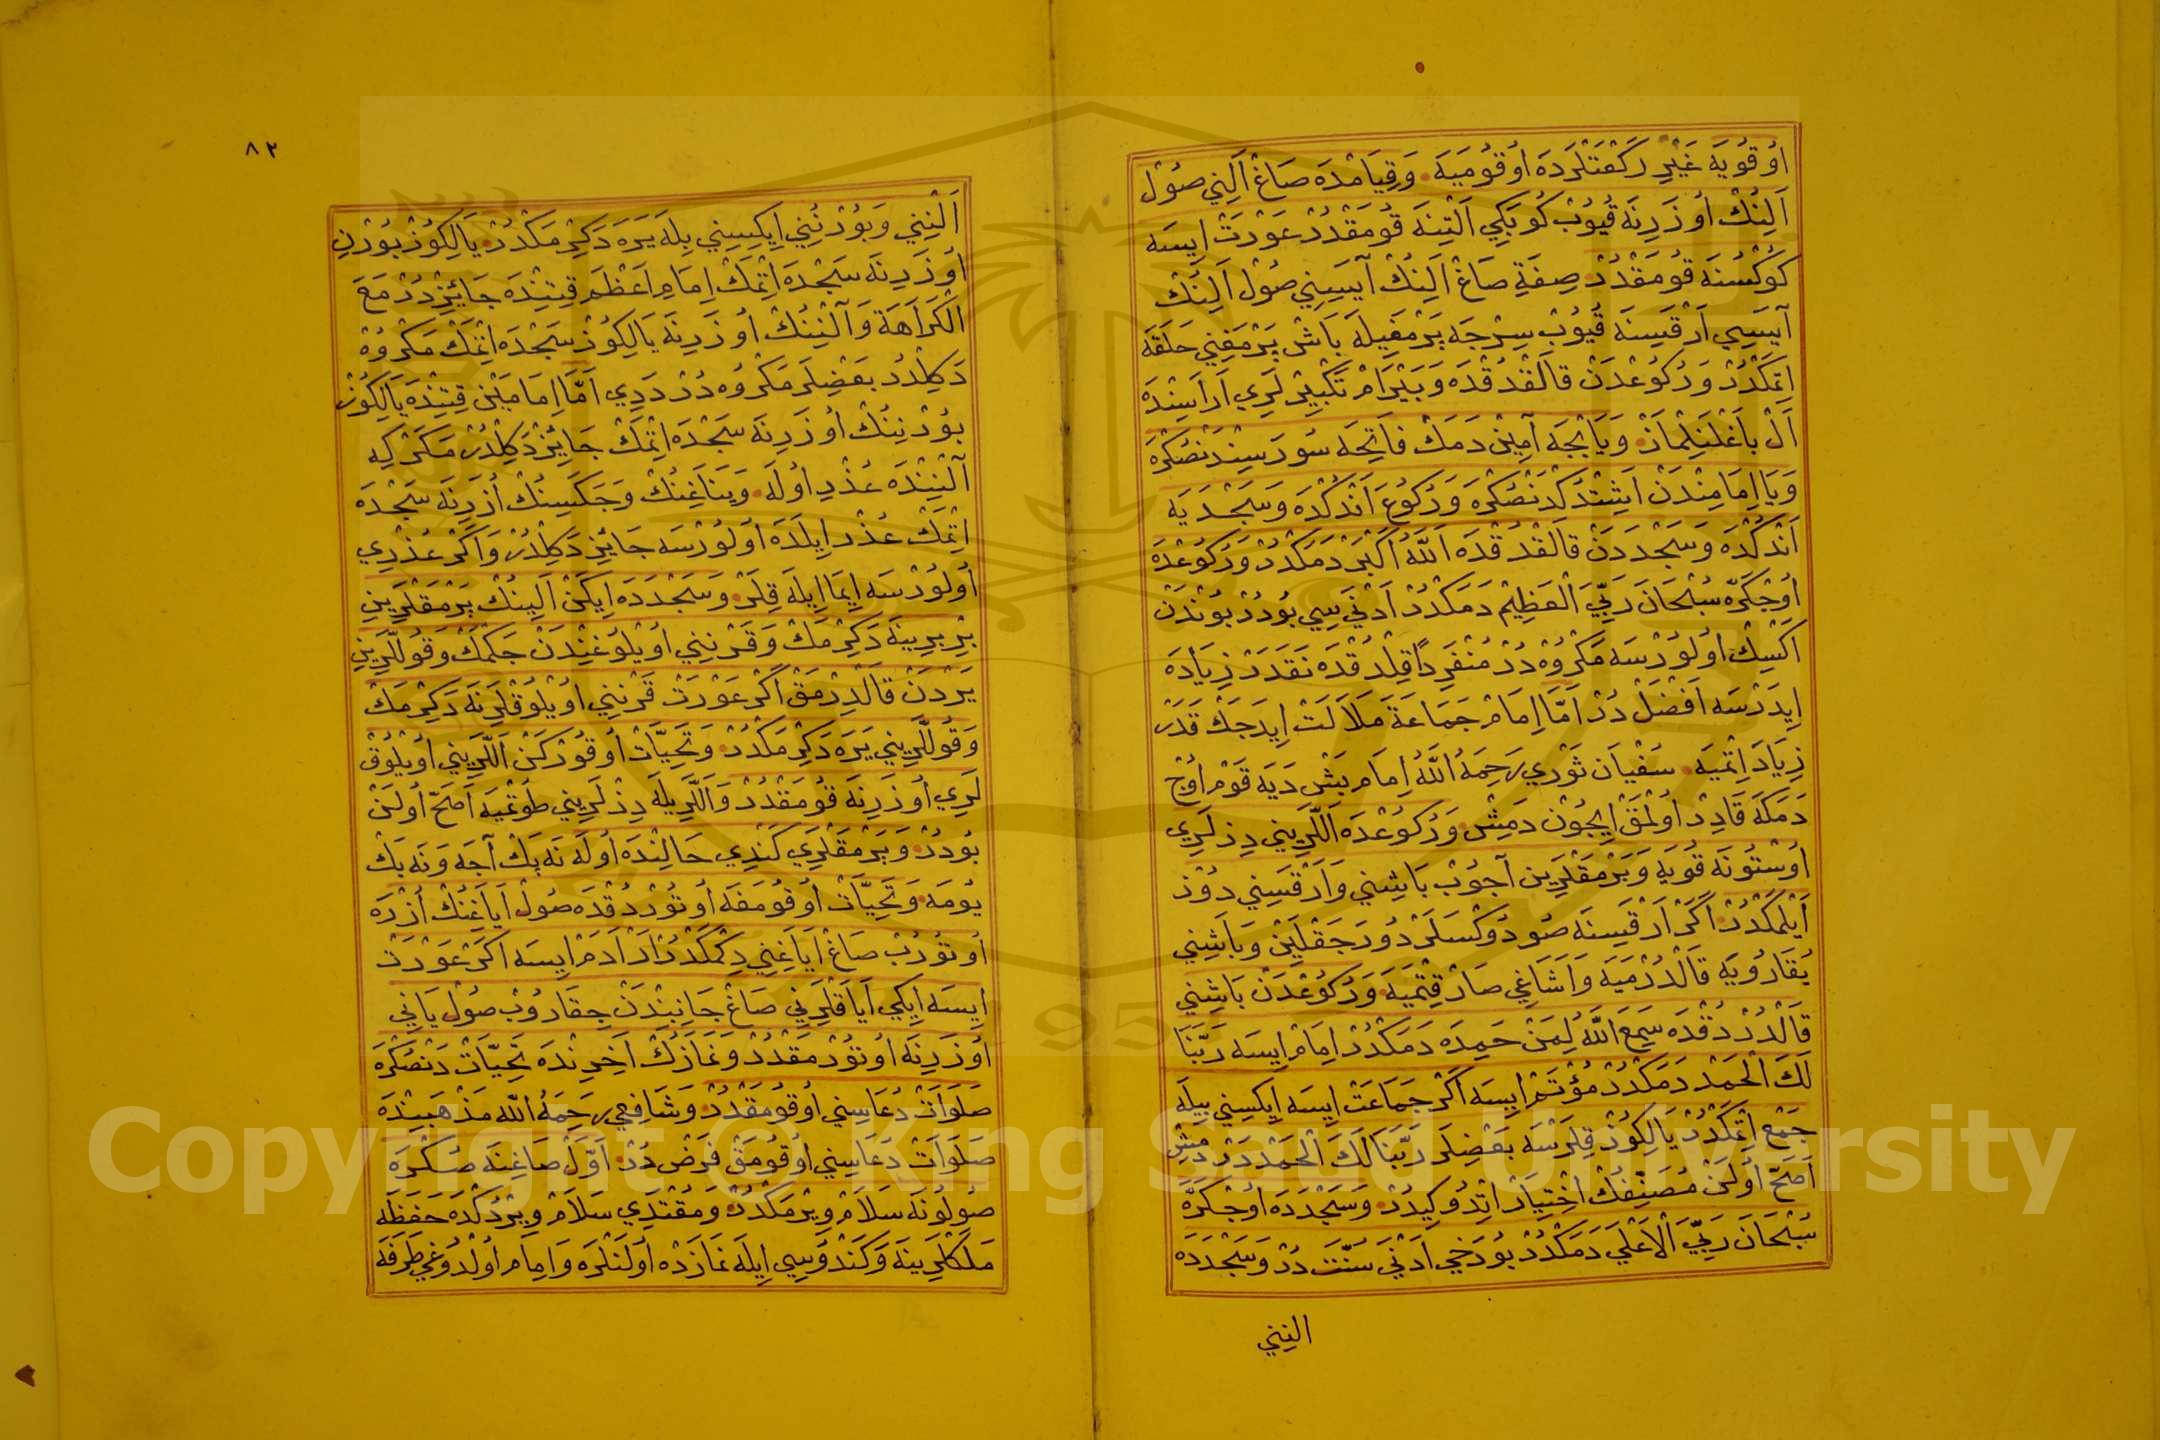 اُوقُويَه غَيْرِ رَكْعَتْلَرْدَه اُوقُومَيَه وَقِيَامْدَه صَاغْ اَلِنِي صُولْ
اَلِنُكْ اُوزَرِنَه قُيُوبْ كُوبَكِي اَلْتِنَه قُومَقْدُرْ عَوْرَتْ اِيسَه
كَوكْسُنَه قُومَقْدُرْ صِفَةِ صَاغْ اَلِنُكْ آيَسِنِي صُولْ اَلِنُكْ
آيَسِي اَرْقَسِنَه قُيُوبْ سِرْجَه پَرْمَغِيلَه بَاشْ پَرْمَغِنِي حَلْقَه
اِتْمَكْدُرْ وَرُكُوعْدَنْ قَالْقْدُقْدَه وَبَيْرَامْ تَكْبِيرْلَرِي اَرَاسِنْدَه
اَلْ بَاغْلَنِلْمَازْ وَيَابْجَه آمِينْ دَمَكْ فَاتِحَه سُورَسِنْدَنْصُكْرَه
وَيَا اِمَامِنْدَنْ اَشِتْدُكْدَنْصُكْرَه وَرُكُوعَ اَنْدُكْدَه وَسَجْدَيَه
اَنْدُكْدَه وَسَجْدَدَنْ قَالْقْدُقْدَه اَللّٰهُ اَكْبَرْ دَمَكْدُرْ وَرُكُوعْدَه
اُوجْكَرَّه سُبْحَانَ رَبِّيَ الْعَظِيمْ دَمَكْدُرْ اَدْنَى سِي بُودُرْ بُونْدَنْ
اَكْسِكْ اُولُورْسَه مَكْرُوهْ دُرْ مُنْفَرِدًا قِلْدُقْدَه نَقَدَرْ زِيَادَه
اِيدَرْسَه اَفْضَلْ دُرْ اَمَّا اِمَامْ جَمَاعَةَ مَلَالَتْ اِيدَجَكْ قَدَرْ
زِيَادَ اِتْمَيَه سُفْيَان ثَوْرِي رَحِمَهُ اللّٰهُ اِمَام بَشْ دَيَه قَوْم اُوجْ
دَمَكَه قَادِرْ اُولْمَقْ اِيجُونْ دَمِشْ وَرُكُوعْدَه اَلْلَرِينِي دِزْلَرِي
اُوسْتُونَه قُويَه وَپَرْمَقْلَرِين آجُوبْ بَاشِنِي وَاَرْقَسِنِي دُوزْ
اَيْلَمَكْدُرْ اَكَرْ اَرْقَسِنَه صُو دُوكْسَلَرْ دُورَجَقْلَيِنْ وَبَاشِنِي
يُقَارُويَه قَالْدُرْمَيَه وَاَشَاغِي صَارْقِتْمَيَه وَرُكُوعْدَنْ بَاشِنِي
قَالْدُرْدُقْدَه سَمِعَ اللّٰهُ لِمَنْ حَمِدَه دَمَكْدُرْ اِمَامْ اِيسَه رَبَّنَا
لَكَ الْحَمْد دَمَكْدُرْ مُؤْتَمْ اِيسَه اَكَرْ جَمَاعَتْ اِيسَه اِيكِسِنِي بِيلَه
جَمْع اِتْمَكْدُرْ يَالِكُوزْ قِلَرْسَه بَعْضِلَر رَبَّنَا لَكَ الْحَمْد دَرْ دَمِشْ
اَصَحّ اُولَنْ مُصَنِّفُكْ اِخْتِيَارْ اِتْدُوكِيدُرْ وَسَجْدَدَه اُوجْكَرَّه
سُبْحَانَ رَبِّيَ الْاَعْلَي دَمَكْدُرْ بُودَخِي اَدْنَي سُنَّتْ دُرْ وَسَجْدَدَه
النِنِي
٨٢
اَلْنِنِي وَبُورْنُنِي اِيكِيسِنِي بِلَه يَرَه دَكِرْمَكْدُرْ يَالِكُوزْ بُورْنِ
اُوزَرِنَه سَجْدَه اِتْمَكْ اِمَامِ اَعْظَم قِتِنْدَه جَائِزْدُرْ مَعَ
الْكَرَاهَة وَآلْنِنُكْ اُوزَرِنَه يَالِكُوزْ سَجْدَه اِتْمَكْ مَكْرُوهْ
دَكِلْدُرْ بَعْضِلَر مَكْرُوه دُرْ دَدِي اَمَّا اِمَامَيْنْ قِتِنْدَه يَالِكُوزْ
بُورْنِنُكْ اُوزَرِنَه سَجْدَه اِتْمَكْ جَائِزْ دَكِلْدُرْ مَكَرْ كِه
آلْنِنْدَه عُذْرِ اُولَه وَيَنَاغِنُكْ وَجَكَسِنُكْ اُزَرِنَه سَجْدَه
اِتْمَكْ عُذْر اِيلَدَه اُولُورْسَه جَائِزْ دَكِلْدُرْ وَاَكَرْ عُذْرِي
اُولُورْسَه اِيمَا اِيلَه قِلَرْ وَسَجْدَدَه اِيكَنْ اَلِينُكْ پَرْمَقْلَرِينِ
بِرْبِرِينَه دَكِرْمَكْ وَقَرْنِنِي اُويْلُوغِنْدَنْ جَكْمَكْ وَقُولْلَرِينِ
يَرْدَنْ قَالْدِرْمَقْ اَكَرْ عَوْرَتْ قَرْنِنِي اُويْلُوقْلَرِنَه دَكِرْمَكْ
وَقُولْلَرِينِي يَرَه دَكِرْمَكْدُرْ وَتَحِيَّاتْ اُوقُورْكَنْ اَلْلَرِينِي اُويْلُوقْ
لَرِي اُوزَرِنَه قُومَقْدُرْ وَاَلْلَرِيلَه دِزْلَرِينِي طُوتْمَيَه اَصَحّ اُولَنْ
بُودُرْ وَپَرْمَقْلَرِي كَنْدِي حَالِنْدَه اُولَه نَه پَكْ آجَه وَنَه پَكْ
يُومَه وَتَحِيَّاتْ اُوقُومَقَه اُوتُورْدُقْدَه صُولْ اَيَاغِنُكْ اُزْرَه
اُوتُورُبْ صَاغْ اَيَاغِنِي دِكْمَكْدُرْ اَرْ اَدَمْ اِيسَه اَكَرْ عَوْرَتْ
اِيسَه اِيكِي اَيَاقْلَرِنِي صَاغْ جَانِبِنْدَنْ جِقَارُوبْ صُولْ يَانِي
اُوزَرِنَه اُوتُورْمَقْدُرْ وَنَمَازُكْ اَخِرِنْدَه تَحِيَّاتْ دَنْصُكْرَه
صَلَوَاتْ دُعَاسِنِي اُوقُومَقْدُرْ وَشَافِعِي رَحِمَهُ اللّٰه مَذْهَبِنْدَه
صَلَوَاتْ دُعَاسِنِي اُوقُومَقْ فَرْض دُرْ اَوَّلْ صَاغِنَه صُكْرَه
صُولُونَه سَلَامْ وِيرْمَكْدُرْ وَمُقْتَدِي سَلَامْ وِيرْدُكْدَه حَفَظَه
مَلَكْلَرِينَه وَكَنْدُوسِي اِيلَه نَمَازْدَه اُولَنْلَرَه وَاِمَام اُولْدُوغِي طَرَفَه